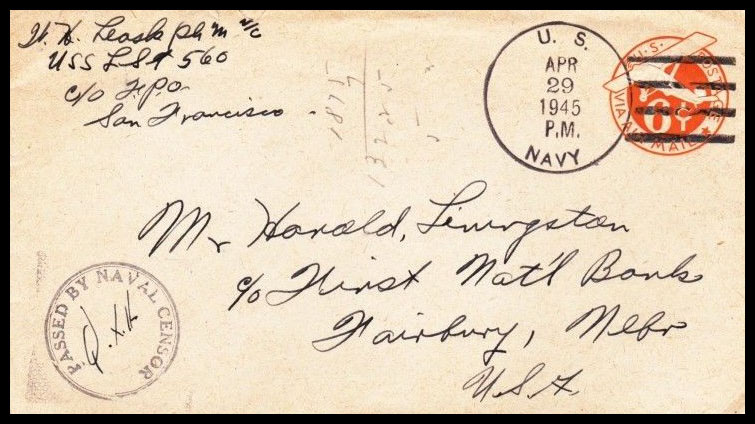 W. H. Leask PhM 2/c
USS LST 560
c/o F.P.O.
San Francisco
U. S.
APR
29
1945
P.M.
NAVY
U.S. POSTAGE
6¢
VIA AIR MAIL
Mr Harold, Livingston
c/o First Nat'l Bank
Fairbury, Nebr
U.S.A.
PASSED BY NAVAL CENSOR